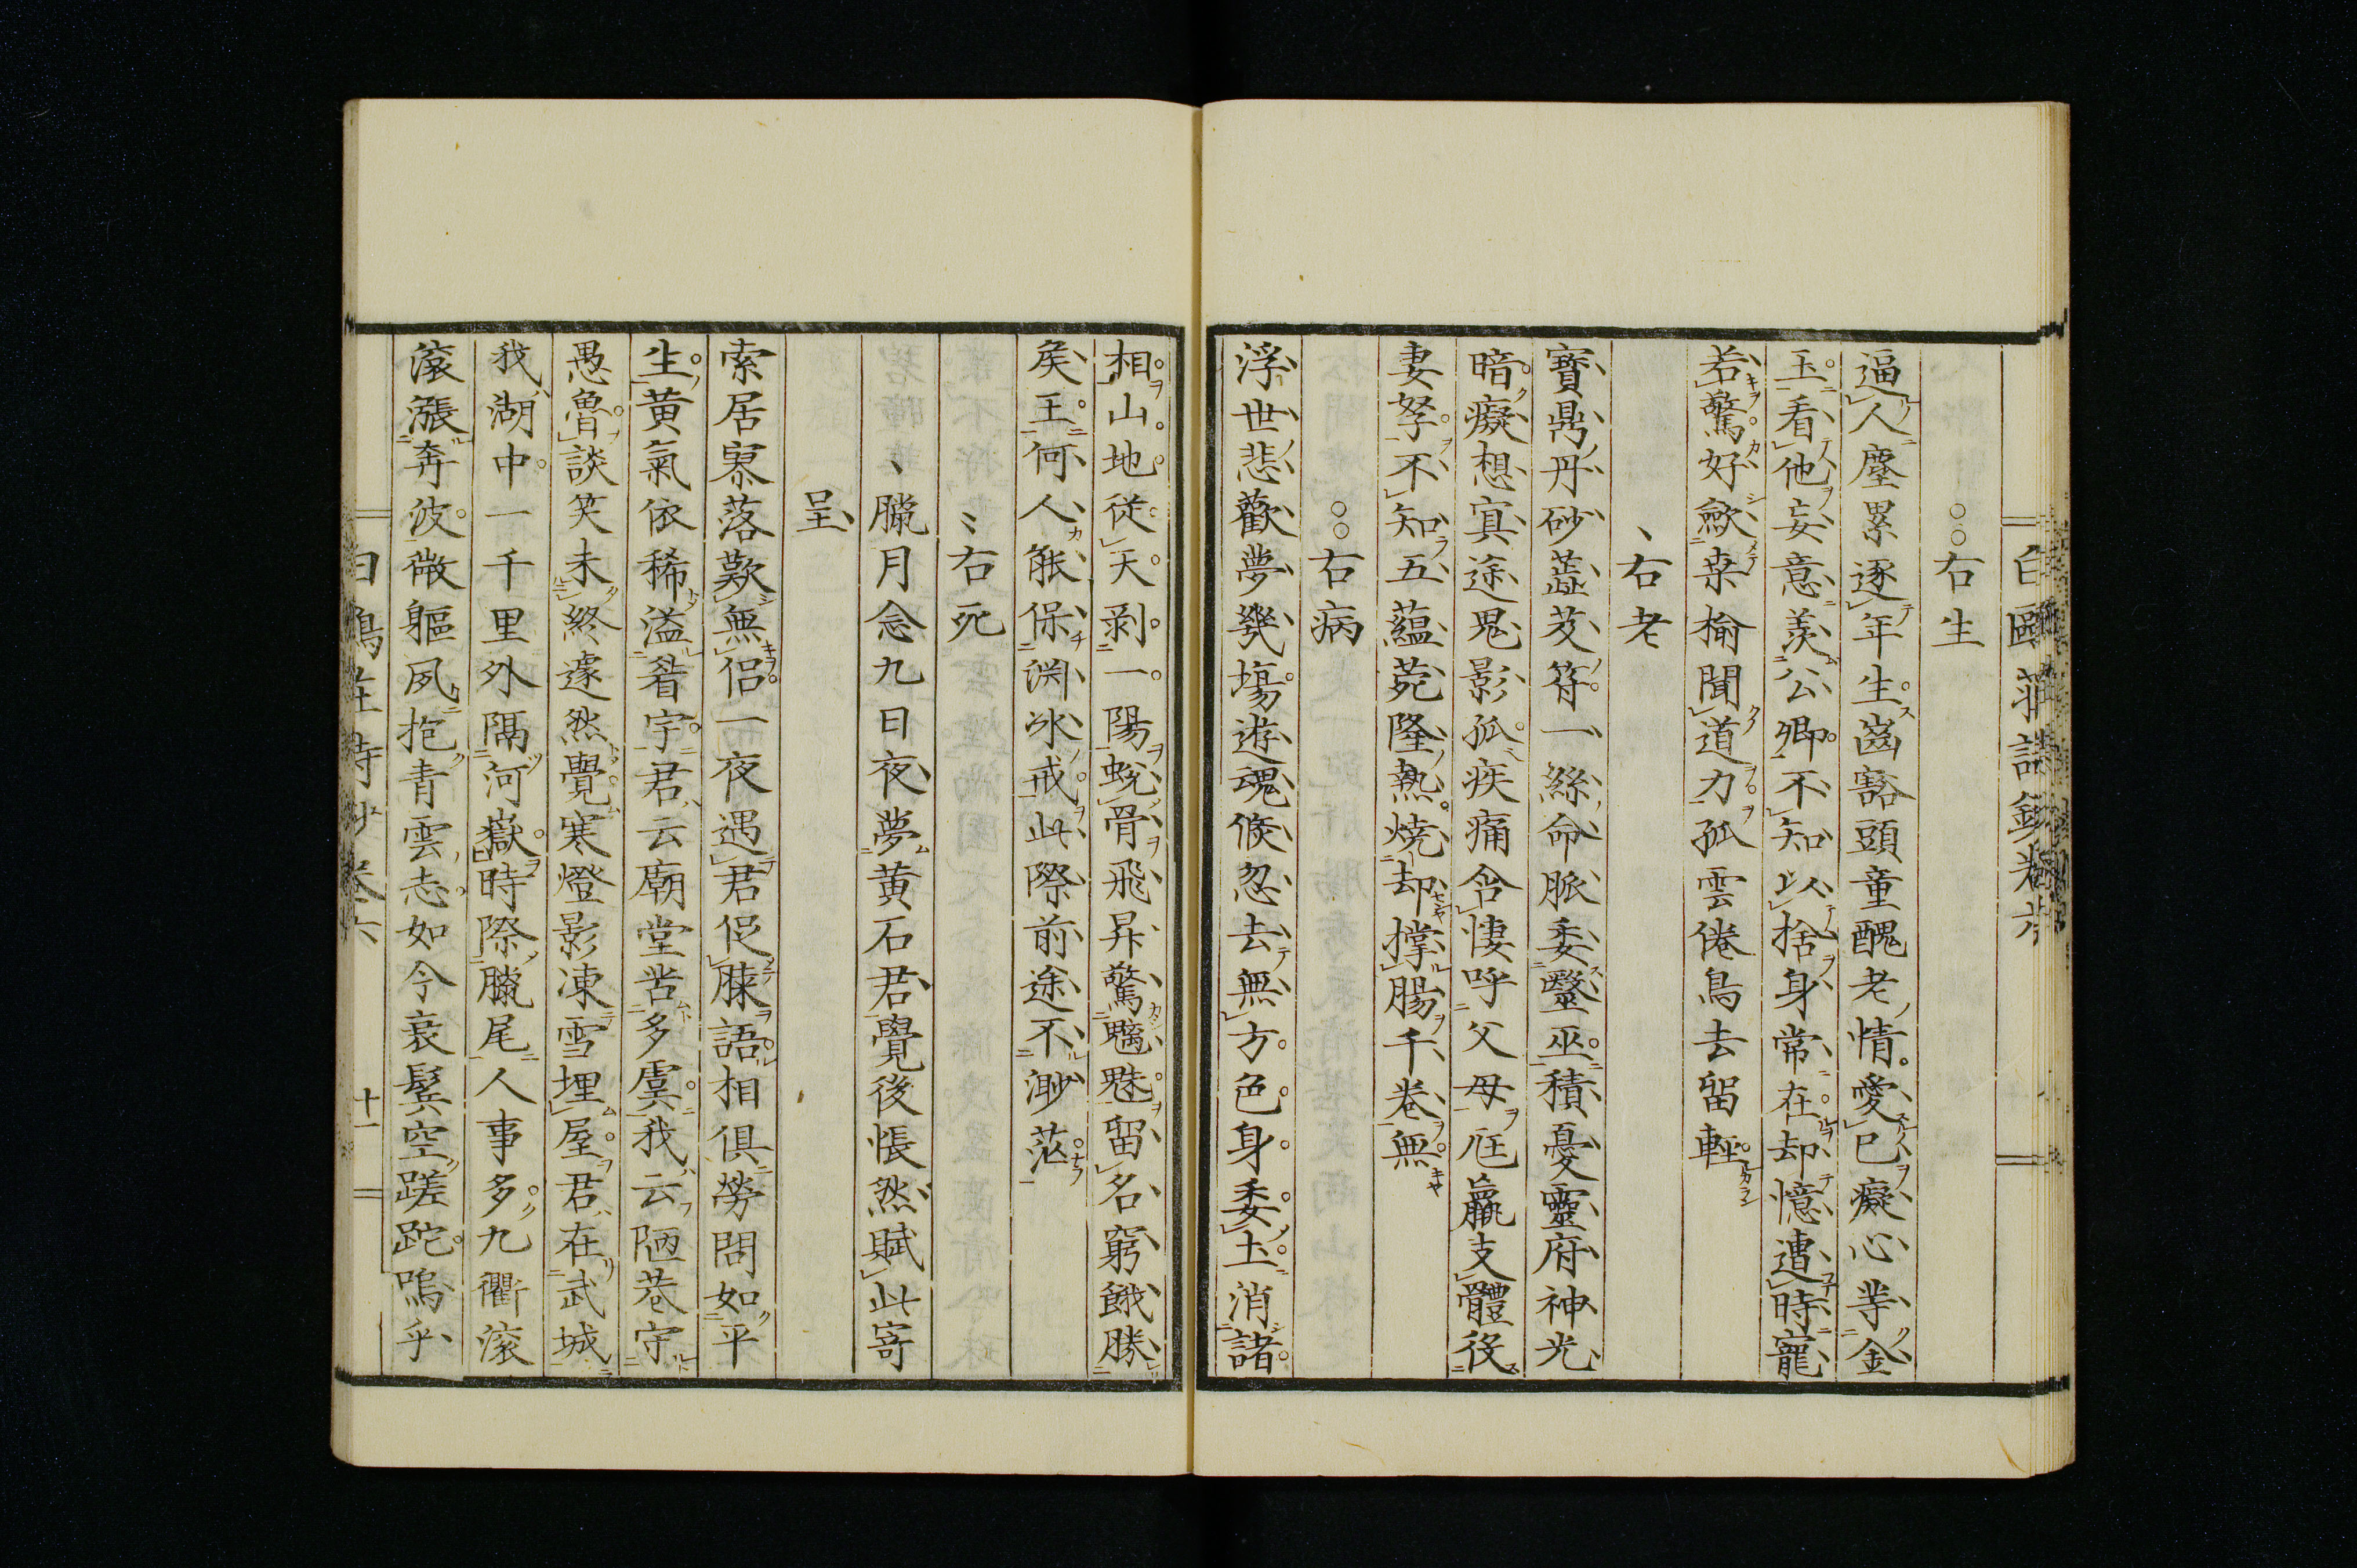 白鷗莊詩鈔卷六
右生
逼人塵累逐年生齒豁頭童醜老情愛已癡心芈金
玉看他妄意羨公卿不知以捨身常在却憶遭時寵
若驚好斂桒榆聞道力孤雲倦鳥去留輕
右老
寶鼎丹砂蓋芝苻一絲命脈委毉巫積憂靈府神光
暗癡想冥途鬼影孤疾痛含悽呼父母尫羸支體役
妻孥不知五蘊菀隆熱燒却撐腸千卷無
右病
浮世悲歡夢幾場遊魂倏忽去無方色身委土消諸
相山地從天剥一陽蛻骨飛昇驚魑魅留名窮餓勝
矦王何人能保淵冰戒此際前途不渺茫
右死
臘月念九日夜夢黄石君覺後悵然賦此寄
呈
索居寡落歎無侣一夜遇君促膝語相俱勞問如平
生黄氣依稀溢眉宇君云廟堂苦多虞我云陋巷守
愚魯談笑未終遽然覺寒燈影凍雪埋屋君在武城
我湖中一千里外隔河嶽時際臘尾人事多九衢滚
滚漲奔波微軀夙抱青雲志如今衰鬂空蹉跎嗚乎
白鷗莊詩鈔卷六
十一